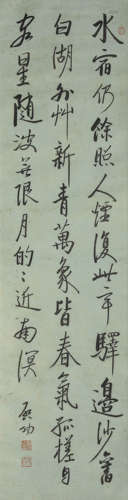 水宿仍餘照人煙復此亭驛邊沙舊
白湖外草新青萬象皆春氣孤槎自
客星隨波無限月的的近南溟
啟功